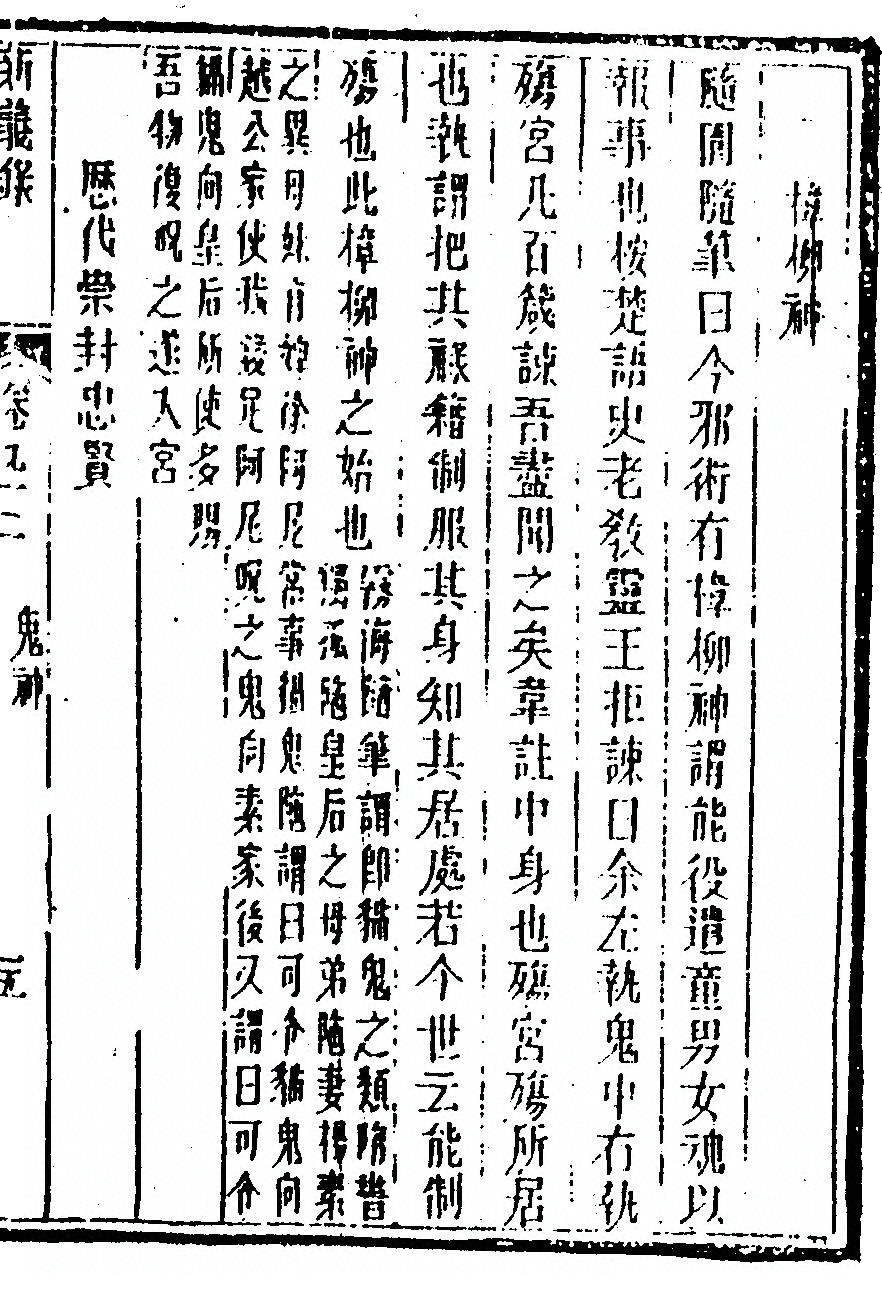 樟柳神
隨聞隨筆曰今邪術有樟柳神謂能役遣童男女魂以
報事也按楚語史老教靈王拒諫曰余左執鬼中右執
殤宮凡百箴諫吾盡聞之矣韋註中身也殤宮殤所居
也執謂把其祿籍制服其身知其居處若今世云能制
殤也此樟柳神之始也
海隨筆謂卽猫鬼之類隋書
獨孤陁皇后之母弟陁妻楊素
之異母妹有婢徐阿尼常事猫鬼陁謂曰可令猫鬼向
越公家使我發足阿尼呪之鬼向素家後又謂曰可令
猫鬼向皇后所使多賜
吾物復呪之遂入宮
歷代崇封忠賢
新義錄 卷九十二 鬼神 五